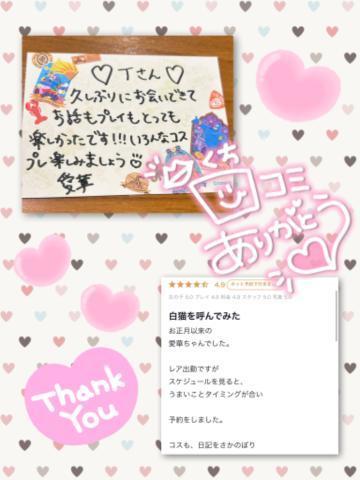 ♡Tさん♡
久しぶりにお会いできて
お話もプレイもとっても
楽しかったです!!!いろんなコス
プレ楽しみましょう
愛華
くち
コミ
ありがとう
4.9
白猫を呼んでみた
お正月以来の
愛華ちゃんでした。
レア出勤ですが
スケジュールを見ると、
うまいことタイミングが合い
予約をしました。
コスも、日記をさかのぼり
Thank
You